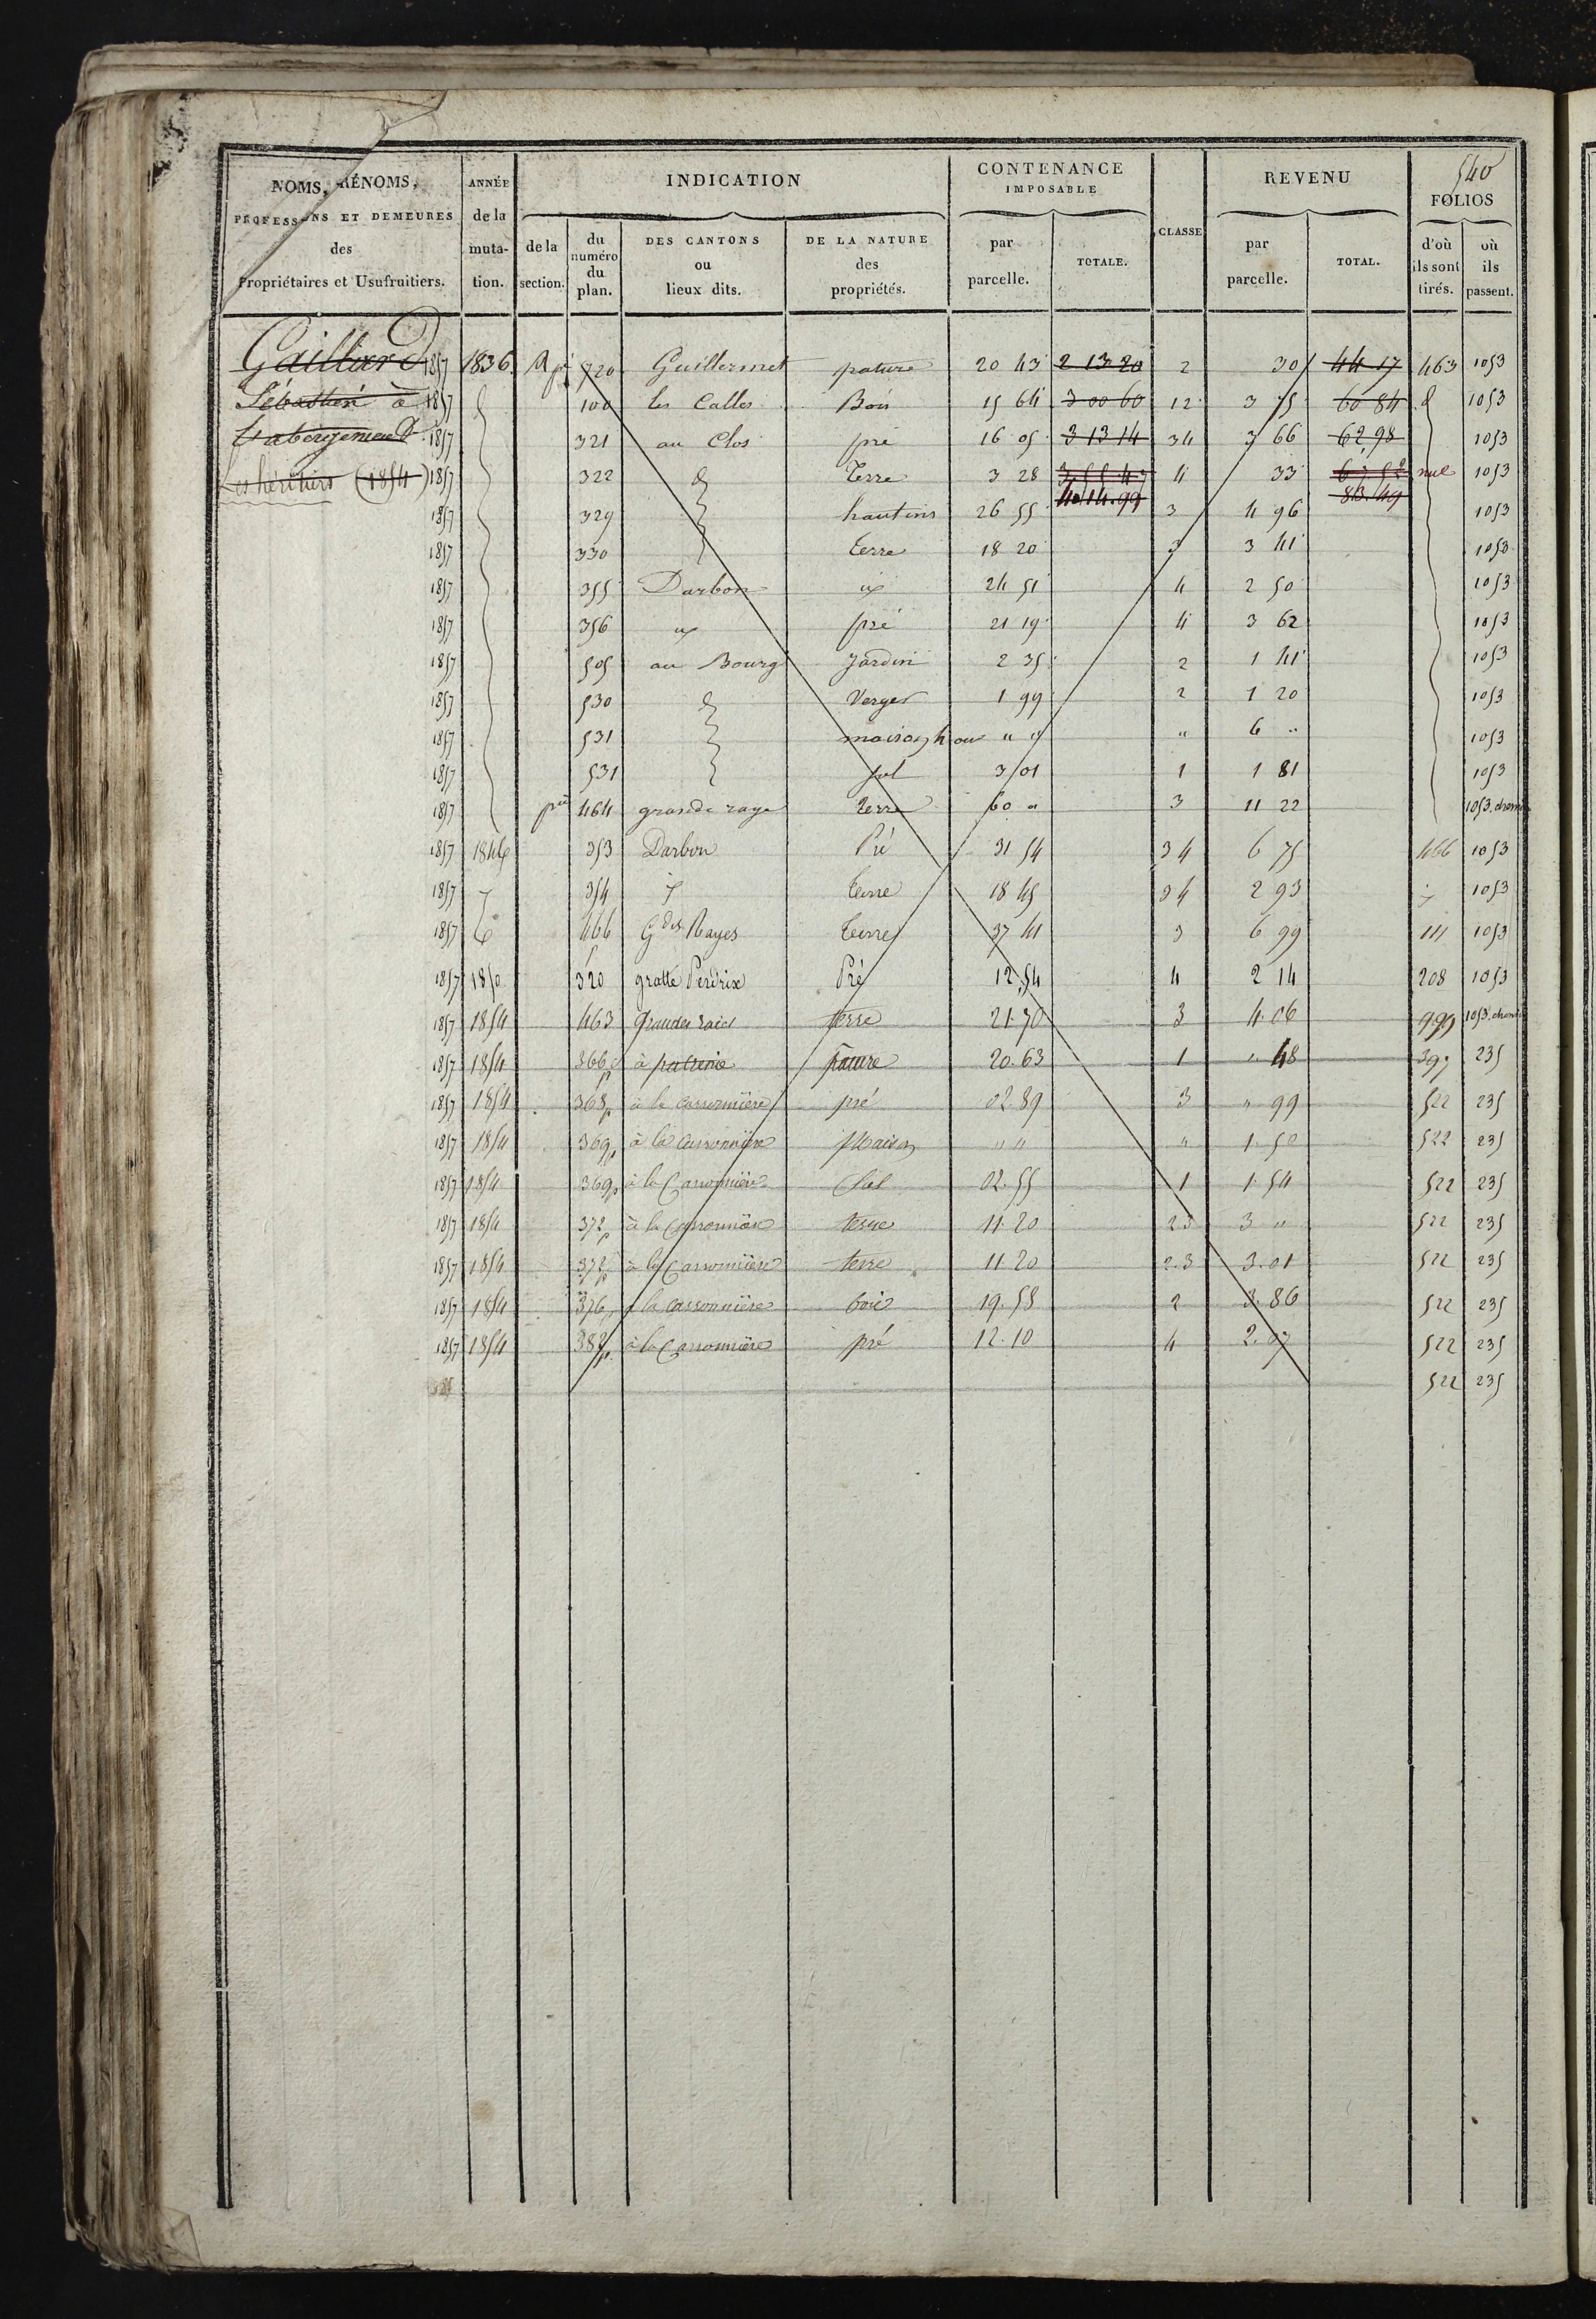 540
NOMS, PRÉNOMS, PROFESSIONS ET DEMEURES des Propriétaires et Usufruitiers.
ANNÉE de la mutation.
INDICATION
de la section.
du numéro du plan.
DES CANTONS ou lieux dits.
DE LA NATURE des propriétés.
CONTENANCE IMPOSABLE
par parcelle.
TOTALE.
CLASSE
REVENU
par parcelle.
TOTAL.
FOLIOS
d'où ils sont tirés.
où ils passent.
Gaillard 1857 1836 A 720 Guillermet pature 20 43 2 13 20 2 30 44 17 463 1053
Sébastien à 1857 100 les Calles Bois 15 64 3 00 60 12 3 75 60 84 1053
l'abergement 1857 321 au Clos pré 16 05 3 13 14 34 3 66 62,98 1053
Les héritiers (1854) 1857 322 Terre 3 28 4 33 nul 1053
4.14.99 83.49
1857 329 hautins 26 55 3 4 96 1053
1857 330 terre 18 20 3 3 41 1053
1857 355 Darbon 24 51 4 2 50 1053
1857 356 pré 21 19 4 3 62 1053
1857 505 au Bourg Jardin 2 35 2 1 41 1053
1857 530 Verger 1 99 2 1 20 1053
1857 531 maison " " " 6 " 1053
1857 531 sol 3 01 1 1 81 1053
1857 464 grande raye terre 60 " 3 11 22 1053
1857 1846 353 Darbon Pré 31 54 34 6 75 466 1053
1857 354 terre 18 45 34 2 93 1053
1857 466 Gdes Rayes terre 37 41 3 6 99 111 1053
1857 1850 320 gratte Perdrix Pré 12,54 4 2 14 208 1053
1857 1854 463 Grandes raies terre 21.70 3 4.06 999 1053
1857 1854 366 à pature 20.63 1 " 48 397 235
1857 1854 368p à la Carronnière pré 02.89 3 " 99 522 235
1857 1854 369p à la Carronnière Maison " " " 1.50 522 235
1857 1854 369p à la Carronnière Sol 02.55 1 1.54 522 235
1857 1854 372p à la Carronnière terre 11.20 2.3 3 " 522 235
1857 1854 372p à la Carronnière terre 11.20 2.3 3.01 522 235
1857 1854 376p à la Carronnière bois 19.58 2 3.86 522 235
1857 1854 382p à la Carronnière pré 12.10 4 2.07 522 235
522 235